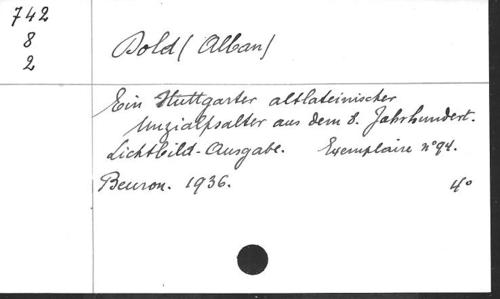 742
8
2
Dold (Alban)
Ein Stuttgarter altlateinischer
Unzialpsalter aus dem 8. Jahrhundert.
Lichtbild-Ausgabe. Exemplaire n° 94.
Beuron. 1936. 4°